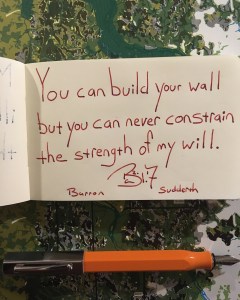 You can build your wall
but you can never constrain
the strength of my will.
Barron Sudderth